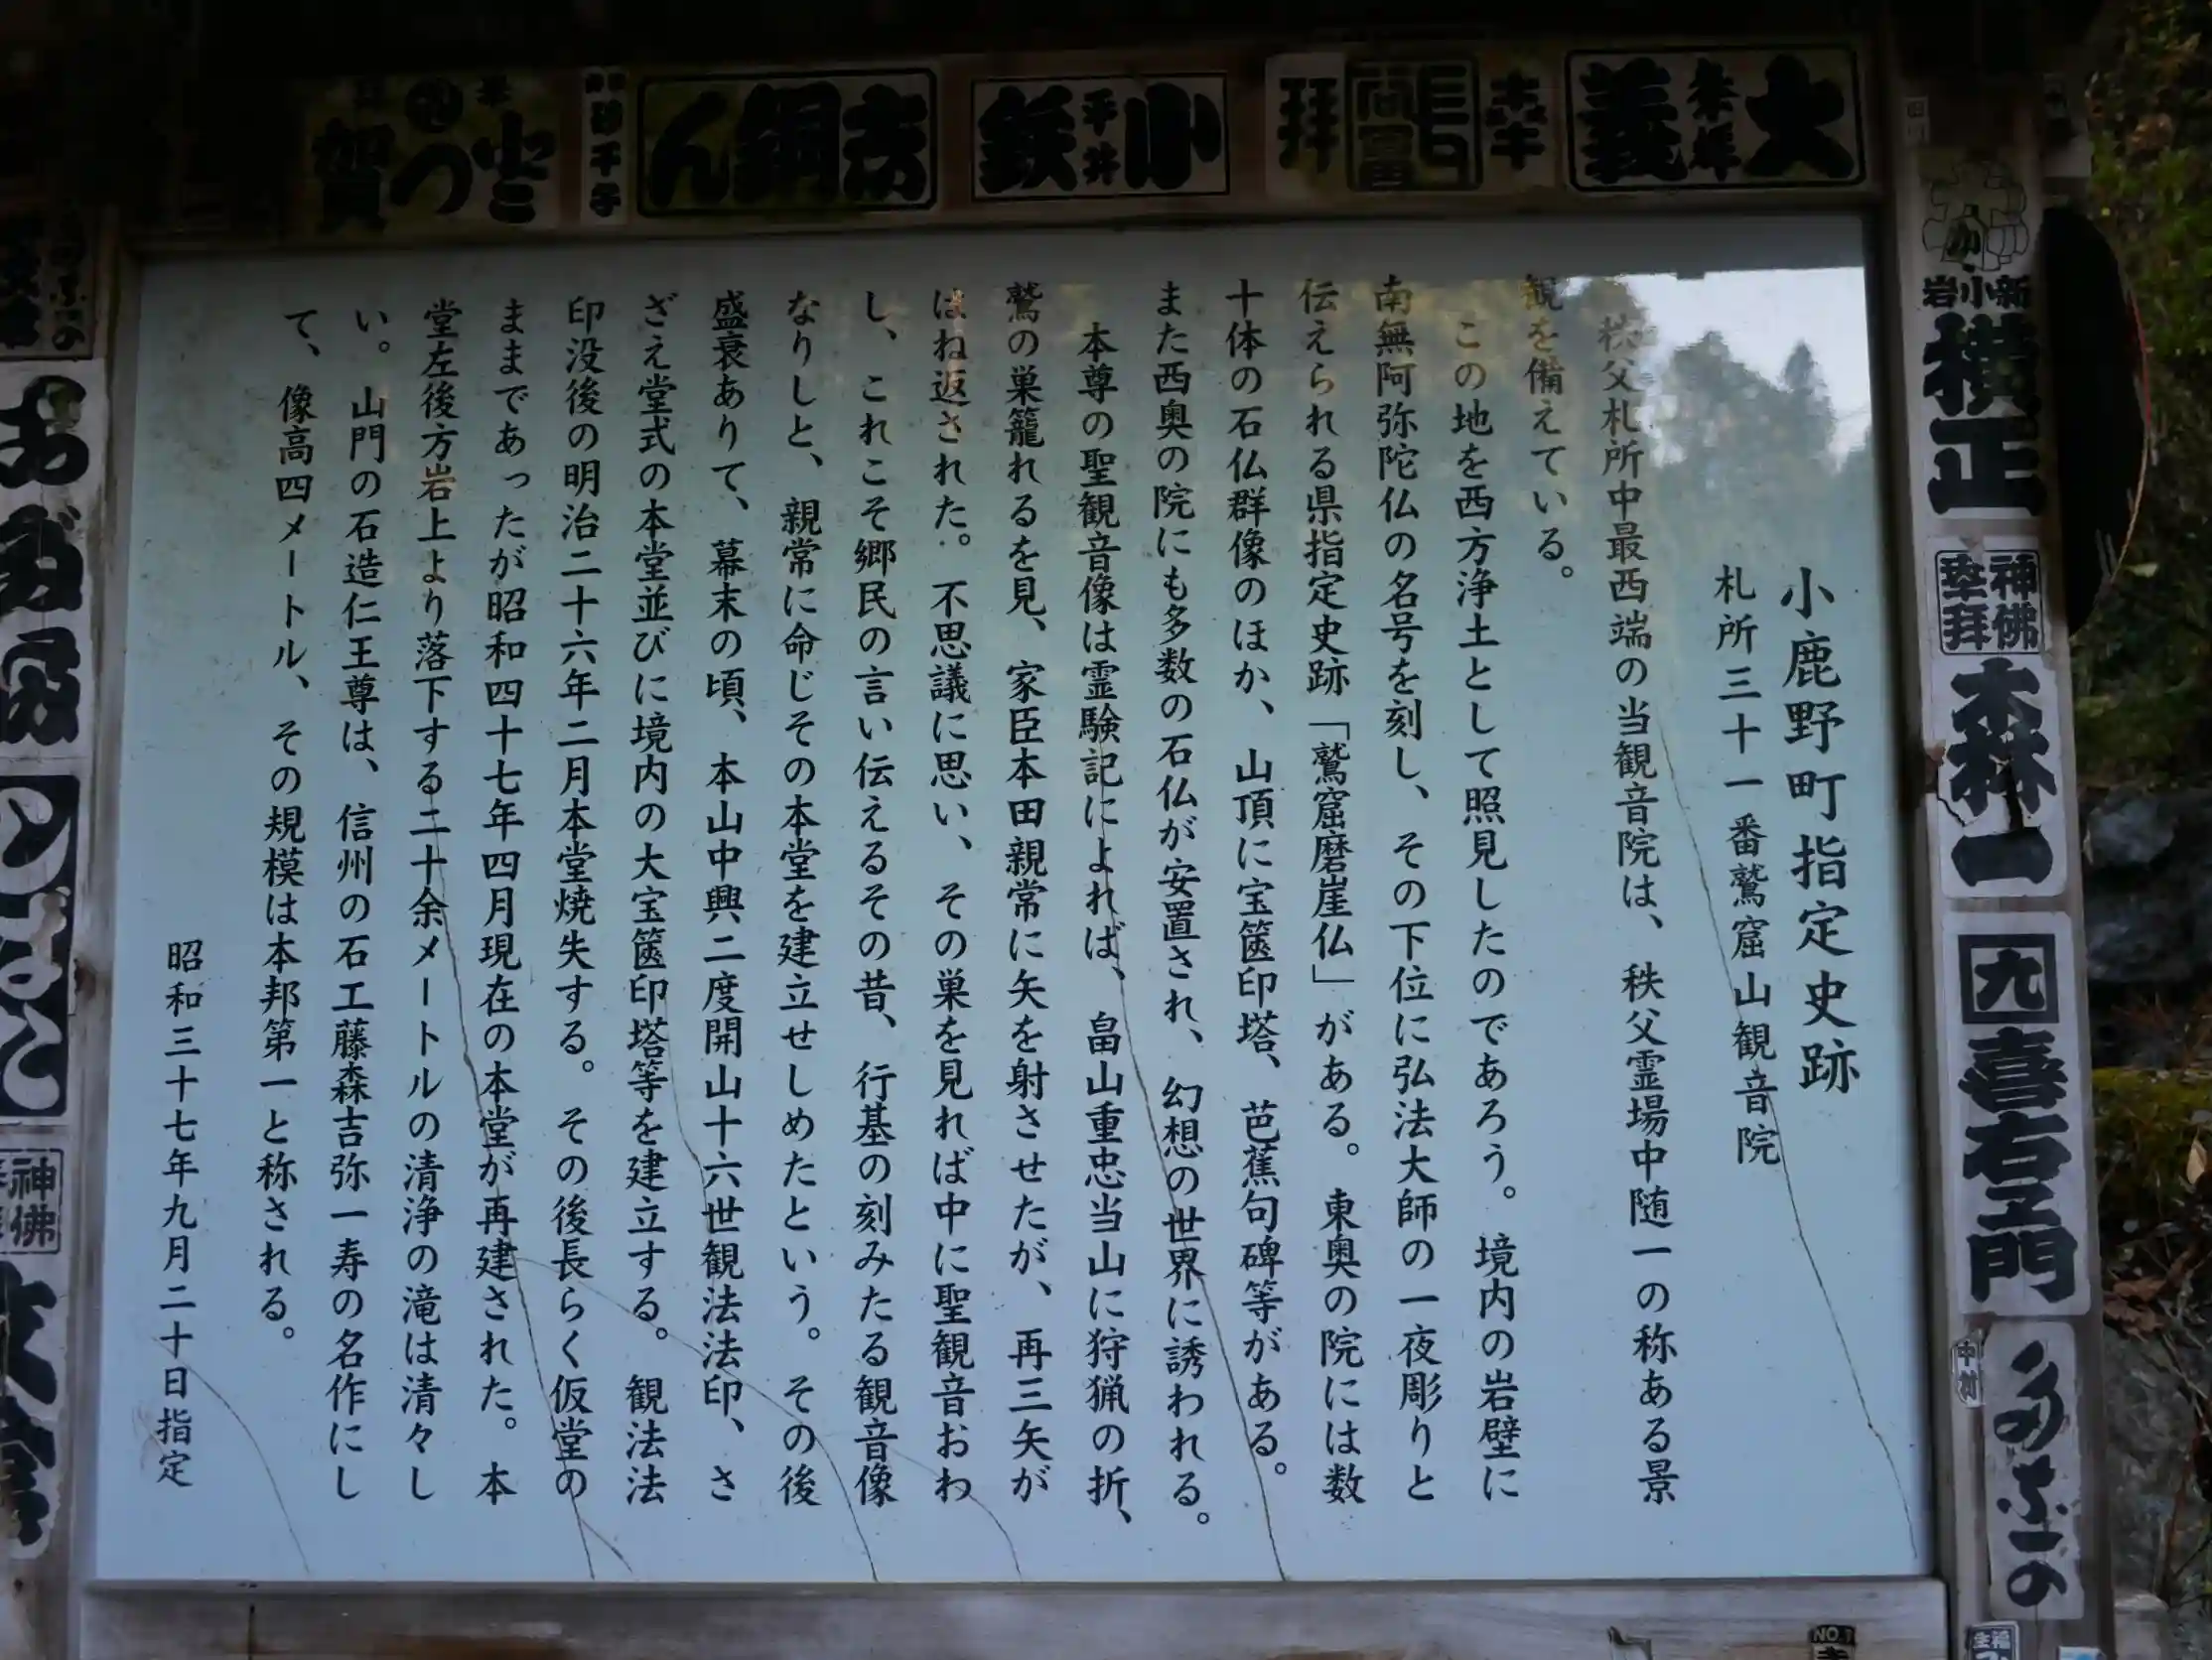 小鹿野町指定史跡
札所三十一番鷲窟山観音院
秩父札所中最西端の当観音院は、秩父霊場中随一の称ある景
観を備えている。
この地を西方浄土として照見したのであろう。境内の岩壁に
南無阿弥陀仏の名号を刻し、その下位に弘法大師の一夜彫りと
伝えられる県指定史跡「鷲窟磨崖仏」がある。東奥の院には数
十体の石仏群像のほか、山頂に宝篋印塔、芭蕉句碑等がある。
また西奥の院にも多数の石仏が安置され、幻想の世界に誘われる。
本尊の聖観音像は霊験記によれば、畠山重忠当山に狩猟の折、
鷲の巣籠れるを見、家臣本田親常に矢を射させたが、再三矢が
はね返された。不思議に思い、その巣を見れば中に聖観音おわ
し、これこそ郷民の言い伝えるその昔、行基の刻みたる観音像
なりしと、親常に命じその本堂を建立せしめたという。その後
盛衰ありて、幕末の頃、本山中興二度開山十六世観法法印、さ
ざえ堂式の本堂並びに境内の大宝篋印塔等を建立する。観法法
印没後の明治二十六年二月本堂焼失する。その後長らく仮堂の
ままであったが昭和四十七年四月現在の本堂が再建された。本
堂左後方岩上より落下する二十余メートルの清浄の滝は清々し
い。山門の石造仁王尊は、信州の石工藤森吉弥一寿の名作にし
て、像高四メートル、その規模は本邦第一と称される。
昭和三十七年九月二十日指定
大義
小鉄
平井
拝
賀
新小岩
横正
神佛
奉拝
森一
九
喜右エ門
中村
神佛
NO.1